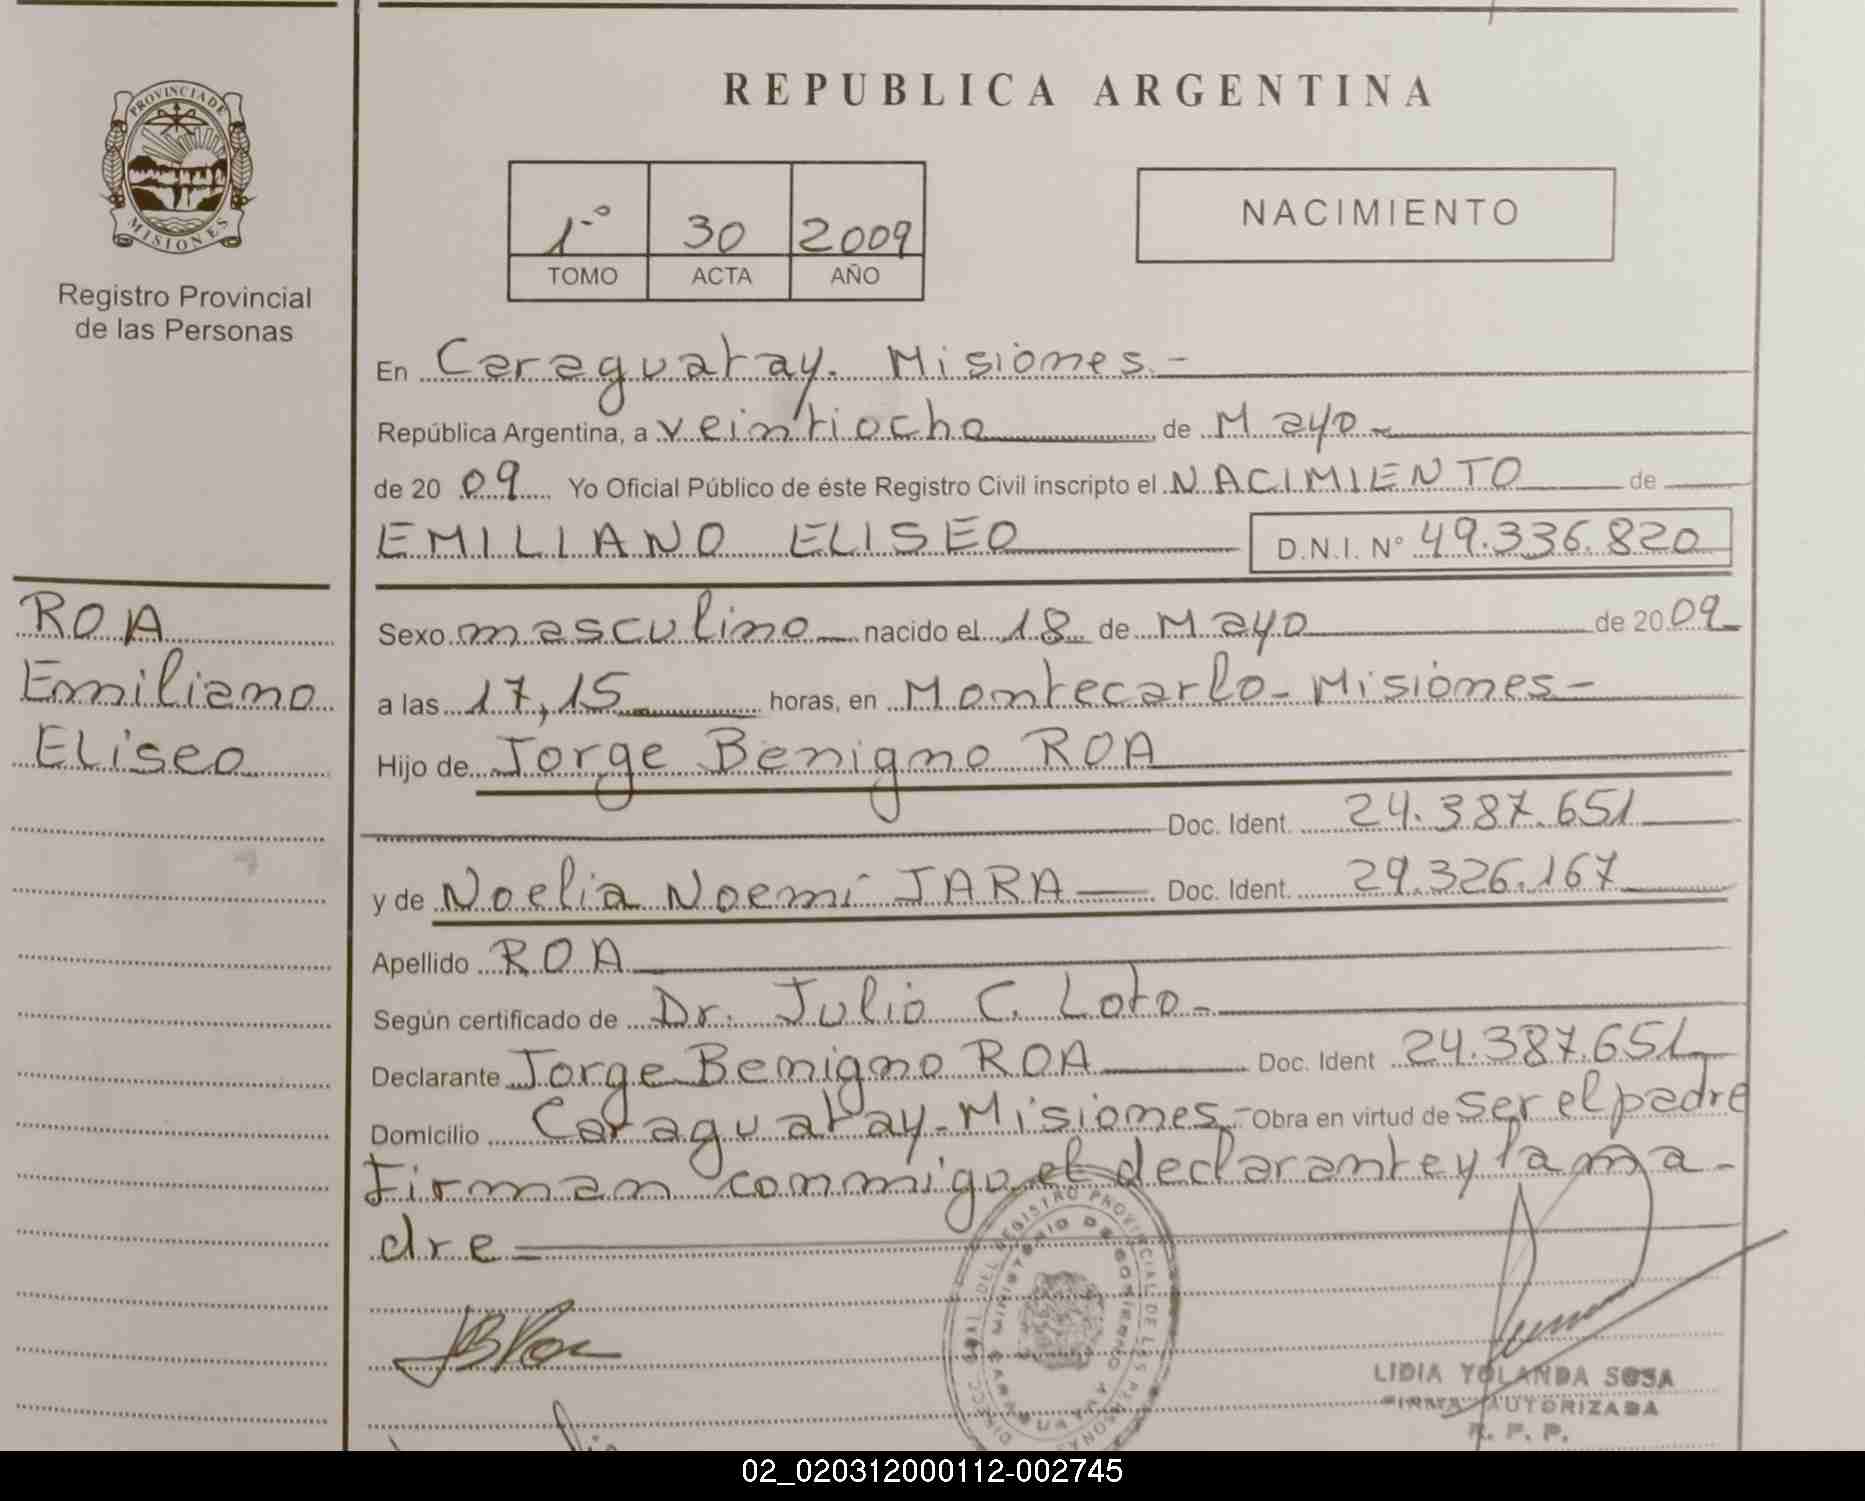 REPUBLICA ARGENTINA
PROVINCIA DE
MISIONES
Registro Provincial
de las Personas
1º 30 2009
TOMO ACTA AÑO
NACIMIENTO
En Caraguatay. Misiones.-
República Argentina, a veintiocho de Mayo-
de 20 09 Yo Oficial Público de éste Registro Civil inscripto el NACIMIENTO de
EMILIANO ELISEO D.N.I. Nº 49.336.820
ROA
Emiliano
Eliseo
Sexo masculino nacido el 18 de Mayo de 20 09
a las 17,15 horas, en Montecarlo-Misiones-
Hijo de Jorge Benigno ROA
Doc. Ident. 24.387.651
y de Noelia Noemí JARA Doc. Ident. 29.326.167
Apellido ROA
Según certificado de Dr. Julio C. Loto-
Declarante Jorge Benigno ROA Doc. Ident 24.387.651
Domicilio Caraguatay-Misiones- Obra en virtud de ser el padre
Firman conmigo el declarante y la ma-
dre
DEL REGISTRO PROVINCIAL DE LAS PERSONAS
MINISTERIO DE GOBIERNO
LIDIA YOLANDA SOSA
FIRMA AUTORIZADA
R. P. P.
02_020312000112-002745